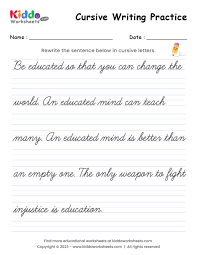 Kiddo
Worksheets.com
Cursive Writing Practice
Name : Date :
Rewrite the sentence below in cursive letters.
Be educated so that you can change the
world. An educated mind can teach
many. An educated mind is better than
an empty one. The only weapon to fight
injustice is education.
Find more educational worksheets at kiddoworksheets.com
Copyright © 2022 - www.kiddoworksheets.com - All rights reserved